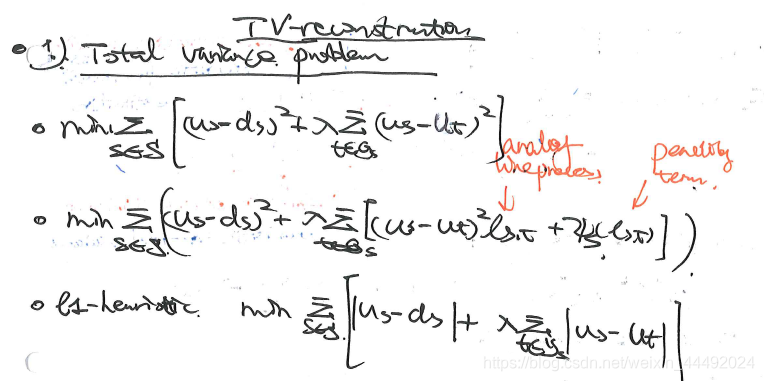 TV-reconstruction
• 1). Total variance problem
o min Σ_{s∈S} [(u_s-d_s)² + λ Σ_{t∈G_s} (u_s-u_t)²]
analog line process.
penality term.
o min Σ_{s∈S} ((u_s-d_s)² + λ Σ_{t∈G_s} [(u_s-u_t)² l_{s,t} + ψ(l_{s,t})])
o l1-heuristic. min Σ_{s∈S} [|u_s-d_s| + λ Σ_{t∈G_s} |u_s-u_t|]
https://blog.csdn.net/weixin_44492024